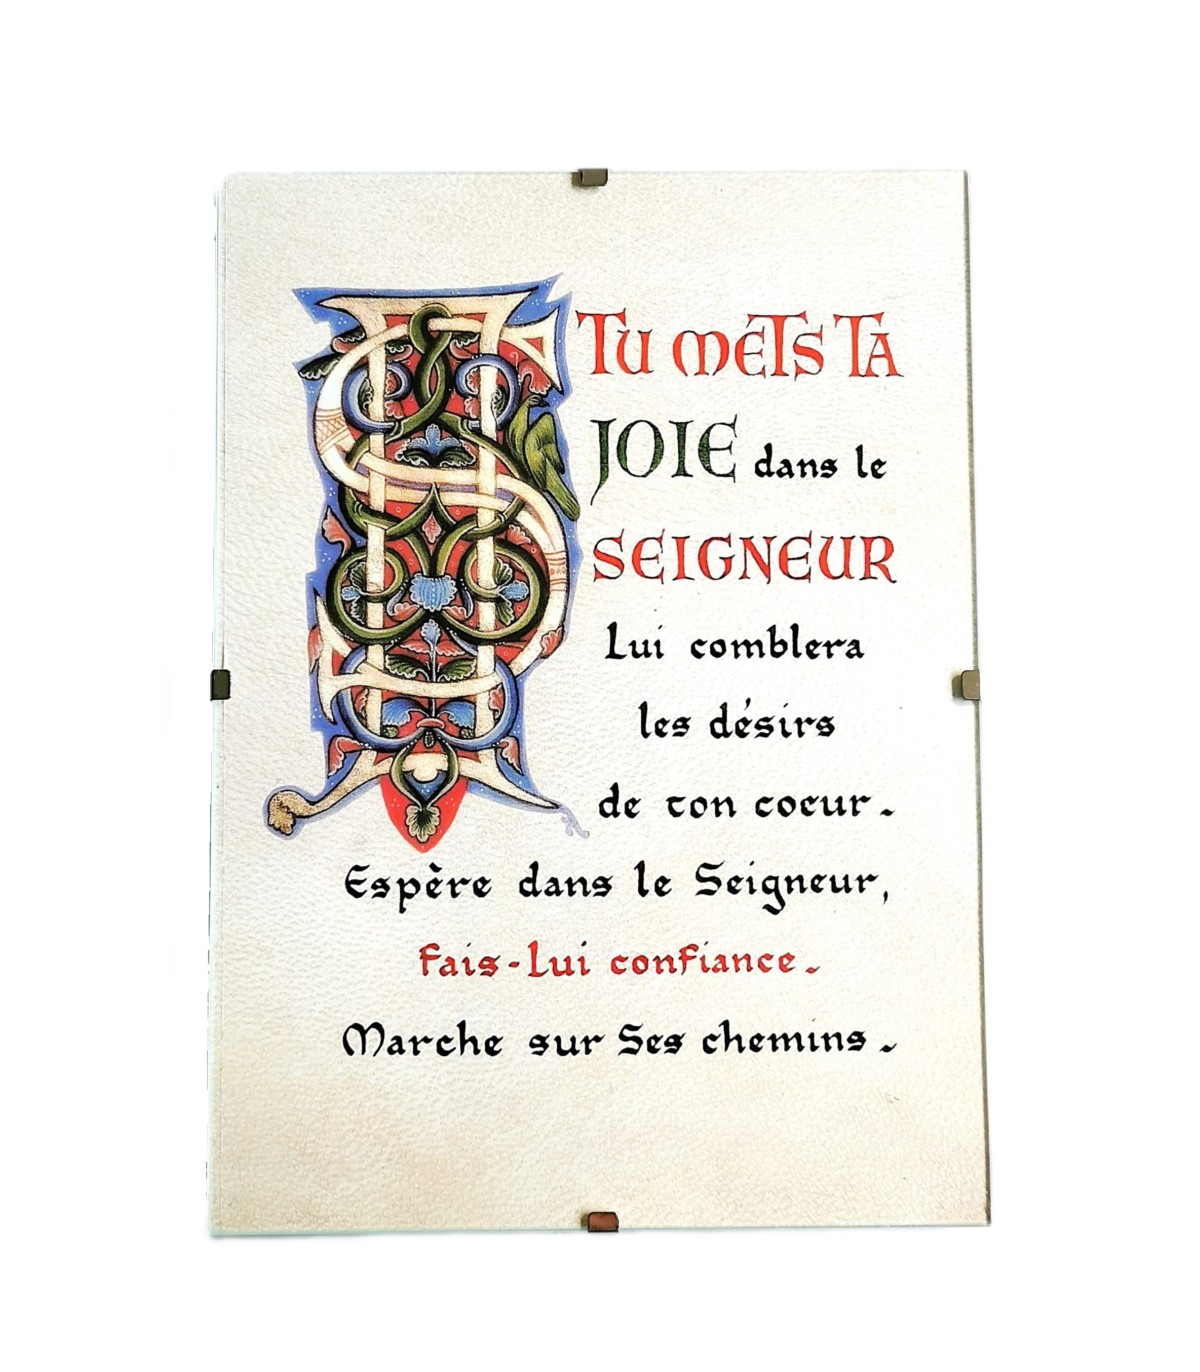 SI TU METS TA
JOIE dans le
SEIGNEUR
Lui comblera
les désirs
de ton coeur.
Espère dans le Seigneur,
fais-Lui confiance.
Marche sur Ses chemins.